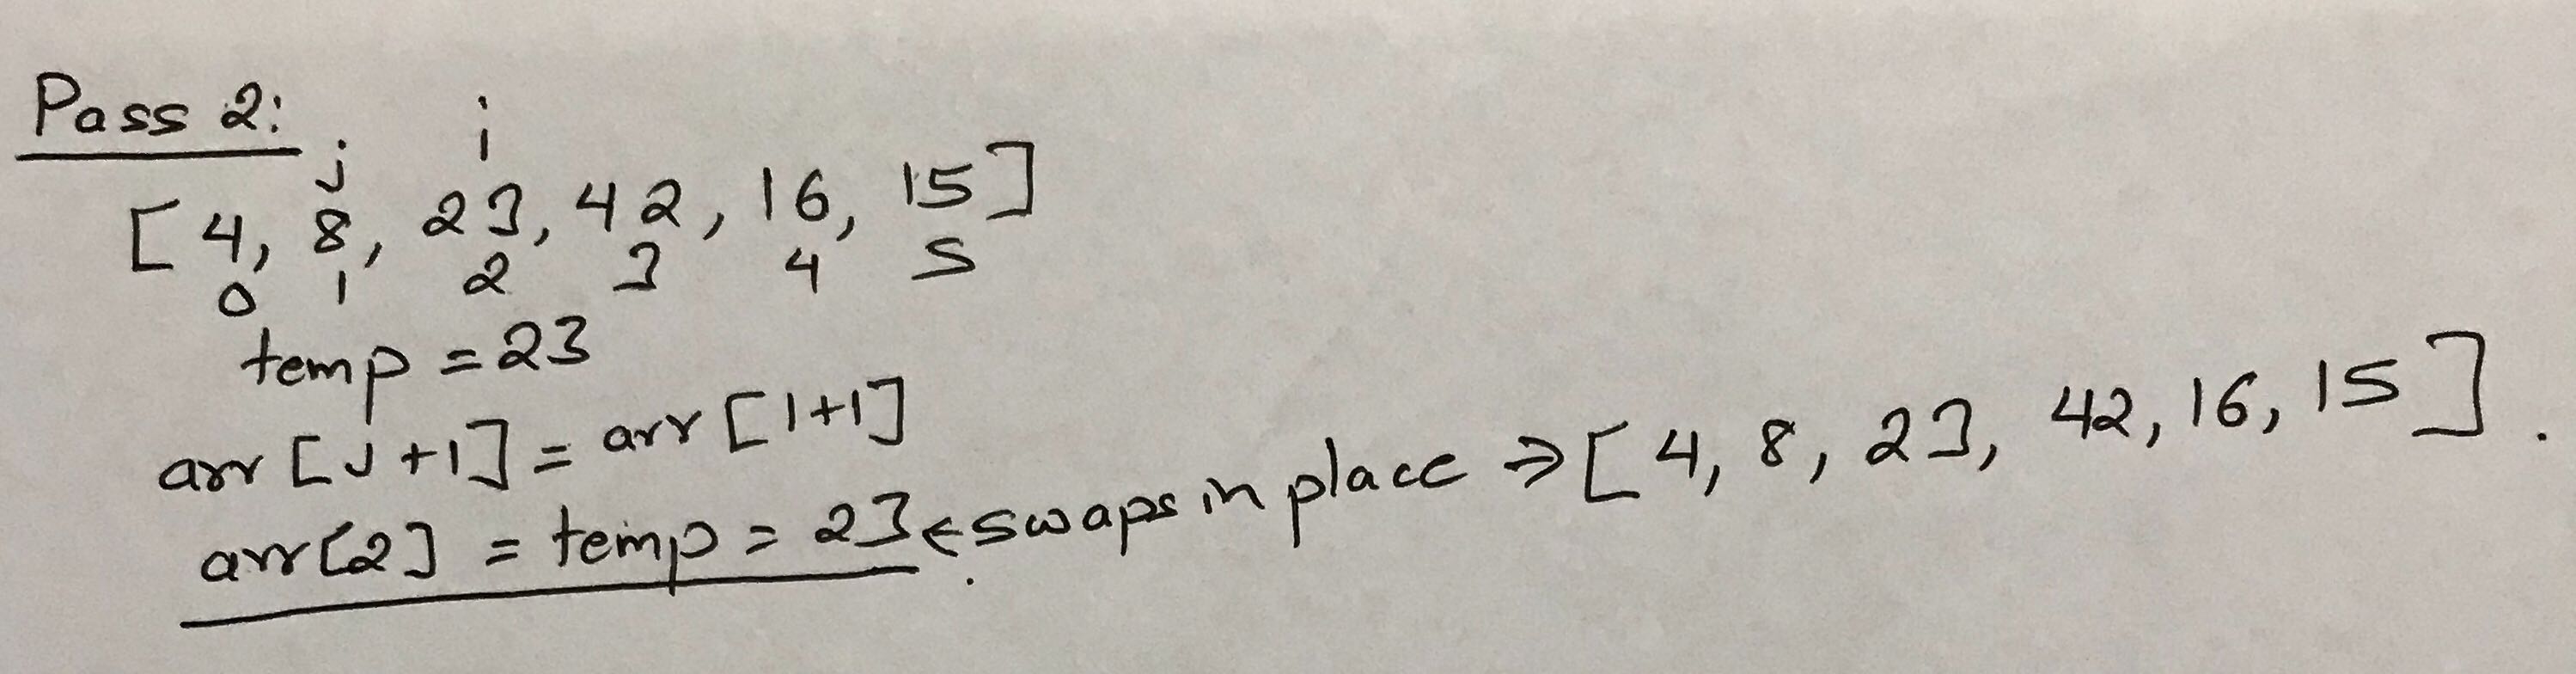 Pass 2:
j i
[4, 8, 23, 42, 16, 15]
0 1 2 3 4 5
temp = 23
arr [J+1] = arr [1+1]
arr[2] = temp = 23 ← swaps in place ⇒ [4, 8, 23, 42, 16, 15].